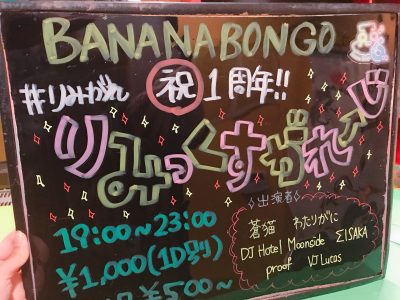 BANANABONGO
#りみがれ 祝 1周年!!
りみっくすがれーじ
19:00~23:00
¥1,000(1D別)
¥500~
◇出演者◇
蒼猫 わたりがに
DJ Hotel Moonside ΣISAKA
proof VJ Lucas